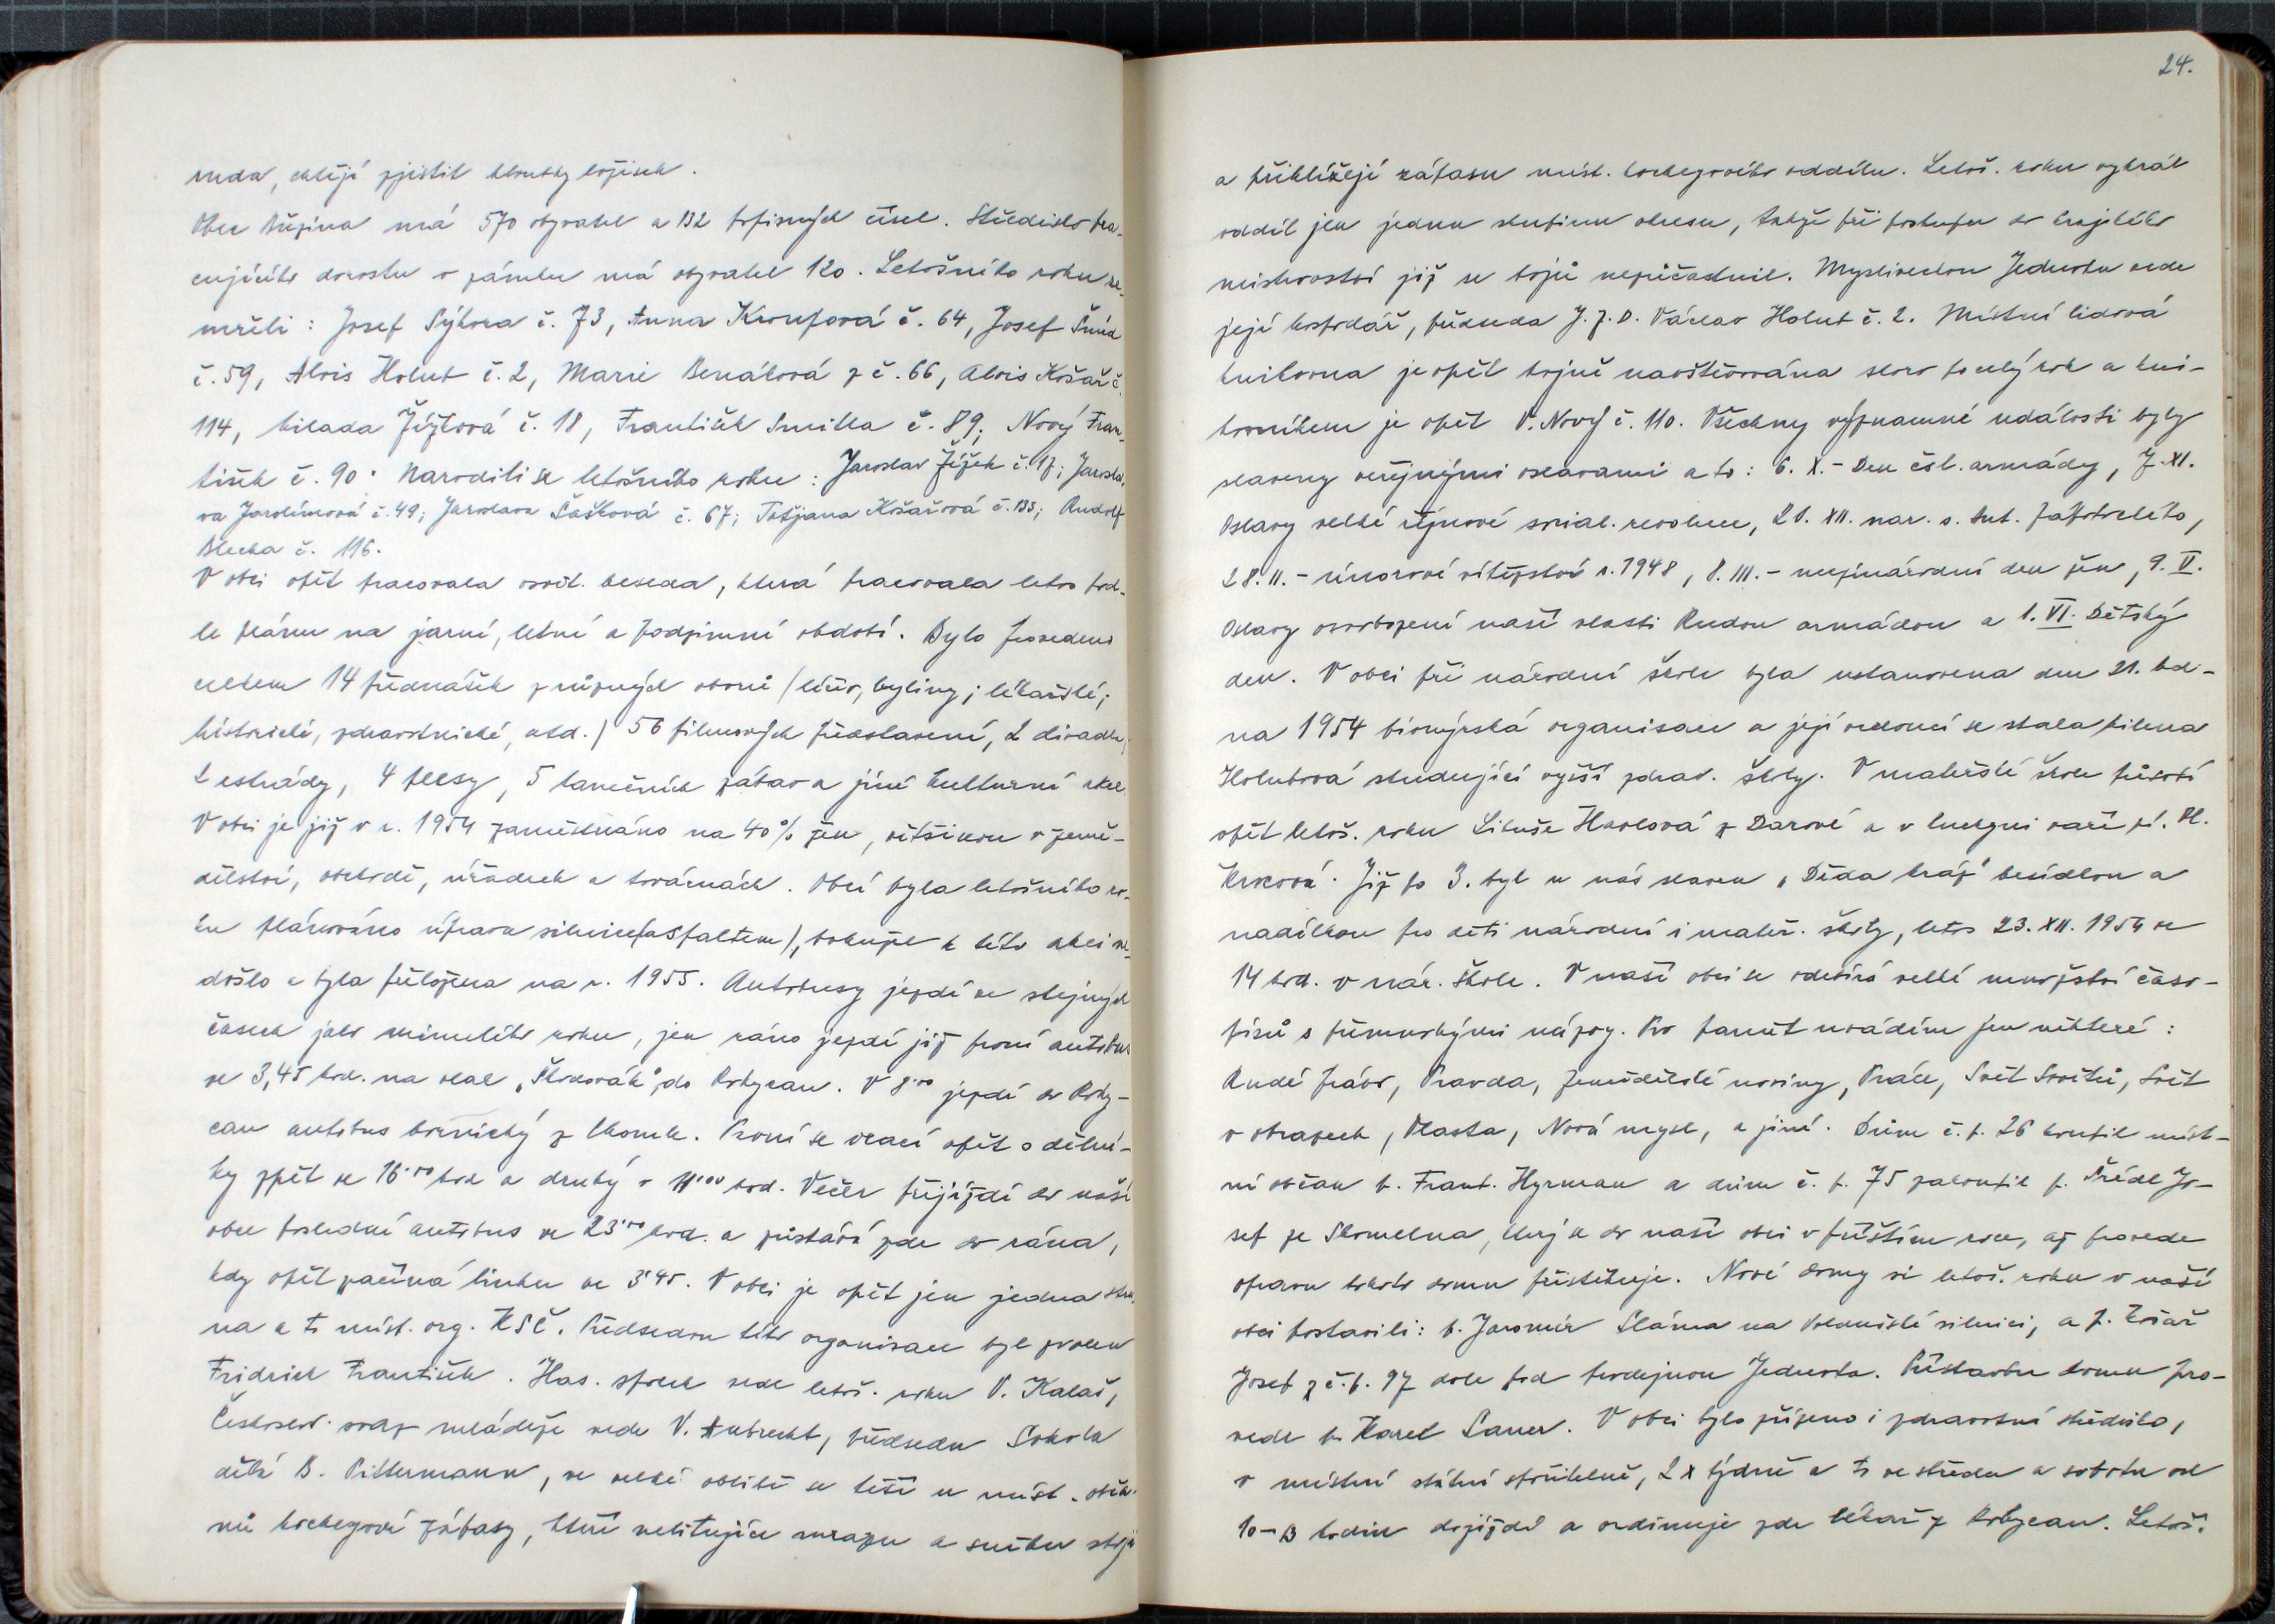 ruda, chtějí zjistit hloubky ložisek.
Obec Březina má 570 obyvatel a 132 popisných čísel. Středisko pra-
cujícího dorostu v zámku má obyvatel 120. Letošního roku ze-
mřeli: Josef Sýkora č. 73, Anna Kroupová č. 64, Josef Šmíd
č. 59, Alois Holub č. 2, Marie Benátová z č. 66, Alois Košař č.
114, Milada Žížková č. 18, František Smitka č. 89; Nový Fran-
tišek č. 90. Narodili se letošního roku: Jaroslav Ježek č. 17; Jarosla-
va Jarolímová č. 49; Jaroslava Šašková č. 67; Taťjana Košařová č. 133; Rudolf
Blecha č. 116.
V obci opět pracovala osvět. beseda, která pracovala letos pod-
le plánu na jarní, letní a podzimní období. Bylo provedeno
celkem 14 přednášek z různých oborů (léčiv, byliny; lékařské;
historické, zdravotnické, atd.) 56 filmových představení, 2 divadla;
2 estrády, 4 plesy, 5 tanečních zábav a jiné kulturní akce.
V obci je již v r. 1954 zaměstnáno na 40% žen, většinou v země-
dělství, obchodě, úřadech a továrnách. Obcí byla letošního ro-
ku plánováno úprava silnice (asfaltem), bohužel k této akci ne-
došlo a byla přeložena na r. 1955. Autobusy jezdí ve stejných
časech jako minulého roku, jen ráno jezdí již první autobus
ve 3,45 hod. na vlak „Škodovák" do Rokycan. V 8.00 jezdí do Roky-
can autobus hornický z Chomle. První se vrací opět s dělní-
ky zpět ve 16.00 hod a druhý v hod. Večer přijíždí do naší
obce poslední autobus ve 23.00 hod. a zůstává zde do rána,
kdy opět začíná linku ve 3.45. V obci je opět jen jedna stra-
na a to míst. org. KSČ. Předsedou této organisace byl zvolen
Fridrich František. Has. sbor vede letoš. roku V. Kalaš,
Českoslov. svaz mládeže vede V. Aubrecht, předsedu Sokola
dělá B. Pittermann, ve velké oblibě se těší u míst. obča-
nů hockeyové zápasy, kteří nelitujíce mrazu a sněhu stojí
24.
a přihlížejí zápasu míst. hockeyového oddílu. Letoš. roku vyhrál
oddíl jen jednu skupinu okresu, takže při postupu do krajského
mistrovství již se bojů nezúčastnil. Mysliveckou Jednotu vede
její hospodář, předseda J.Z.D. Václav Holub č. 2. Místní lidová
knihovna je opět hojně navštěvována skoro po celý rok a kni-
hovníkem je opět V. Nový č. 110. Všechny významné události byly
slaveny veřejnými oslavami a to: 6. X. - Den čsl. armády, 7. XI.
Oslavy velké říjnové social. revoluce, 21. XII. nar. s. Ant. Zápotockého,
28. II. - únorové vítězství r. 1948, 8. III. - mezinárodní den žen, 9. V.
Oslavy osvobození naší vlasti Rudou armádou a 1. VI. Dětský
den. V obci při národní škole byla ustanovena dne 21. led-
na 1954 pionýrská organisace a její vedoucí se stala Milena
Holubová studující vyšší zdrav. školy. V mateřské škole působí
opět letoš. roku Libuše Havlová z Darové a v kuchyni vaří pí. Vl.
Již po 3. byl u nás slaven „Děda Mráz" besídkou a
nadílkou pro děti národní i mateř. školy, letos 23. XII. 1954 ve
14 hod. v nár. škole. V naší obci se odebírá velké množství časo-
pisů s různorodými názvy. Pro paměť uvádím jen některé:
Rudé právo, Pravda, Zemědělské noviny, Práce, Svět Sovětů, Svět
v obrazech, Vlasta, Nová mysl, a jiné. Dům č. p. 26 koupil míst-
ní občan p. Frant. Hyrman a dům č. p. 75 zakoupil p. Šrédl Jo-
sef ze Skomelna, který se do naší obci v příštím roce, až provede
opravu tohoto domu přistěhuje. Nové domy si letoš. roku v naší
obci postavili: p. Jaromír Sláma na Volduchské silnici, a p. Košař
Josef z č. p. 97 dole pod prodejnou Jednota. Přístavbu domu pro-
vede p. Karel Sauer. V obci bylo zřízeno i zdravotní středisko,
v místní státní spořitelně, 2x týdně a to ve středu a sobotu od
10-13 hodin dojíždí a ordinuje zde lékař z Rokycan. Letoš.